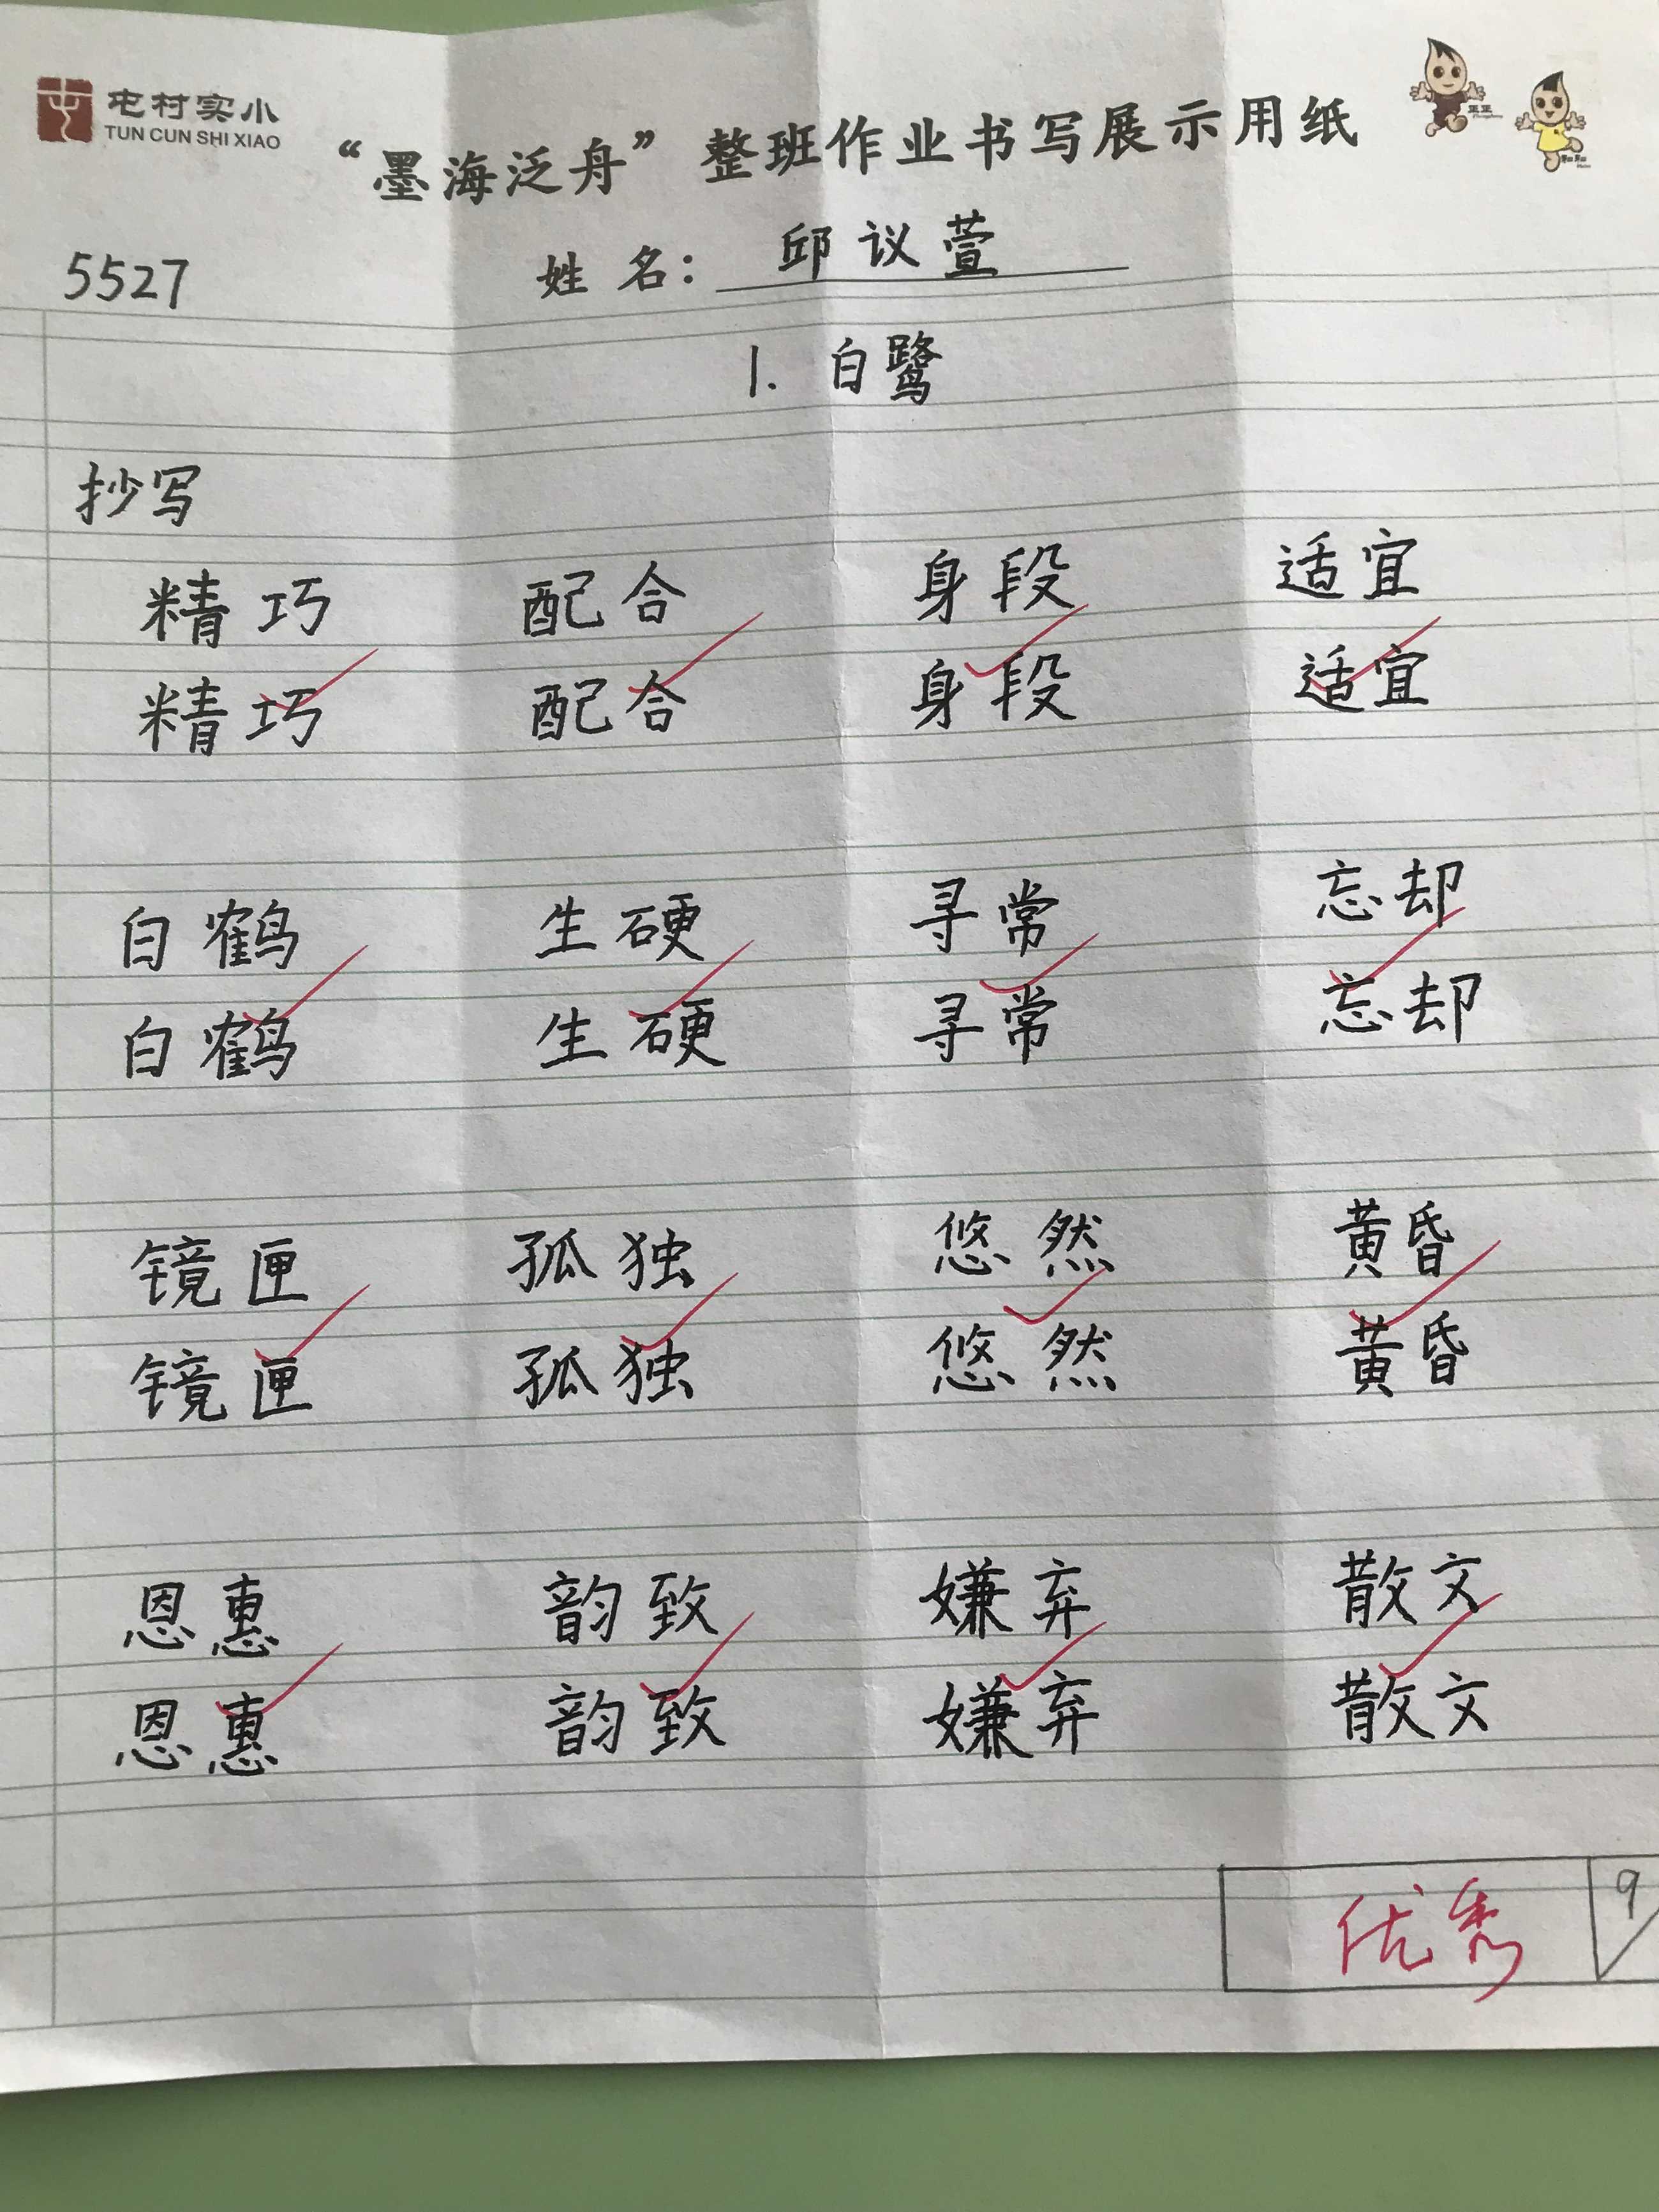 屯村实小
TUN CUN SHI XIAO
“墨海泛舟”整班作业书写展示用纸
5527 姓名：邱议萱
1. 白鹭
抄写
精巧 配合 身段 适宜
精巧 配合 身段 适宜
白鹤 生硬 寻常 忘却
白鹤 生硬 寻常 忘却
镜匣 孤独 悠然 黄昏
镜匣 孤独 悠然 黄昏
恩惠 韵致 嫌弃 散文
恩惠 韵致 嫌弃 散文
优秀 9